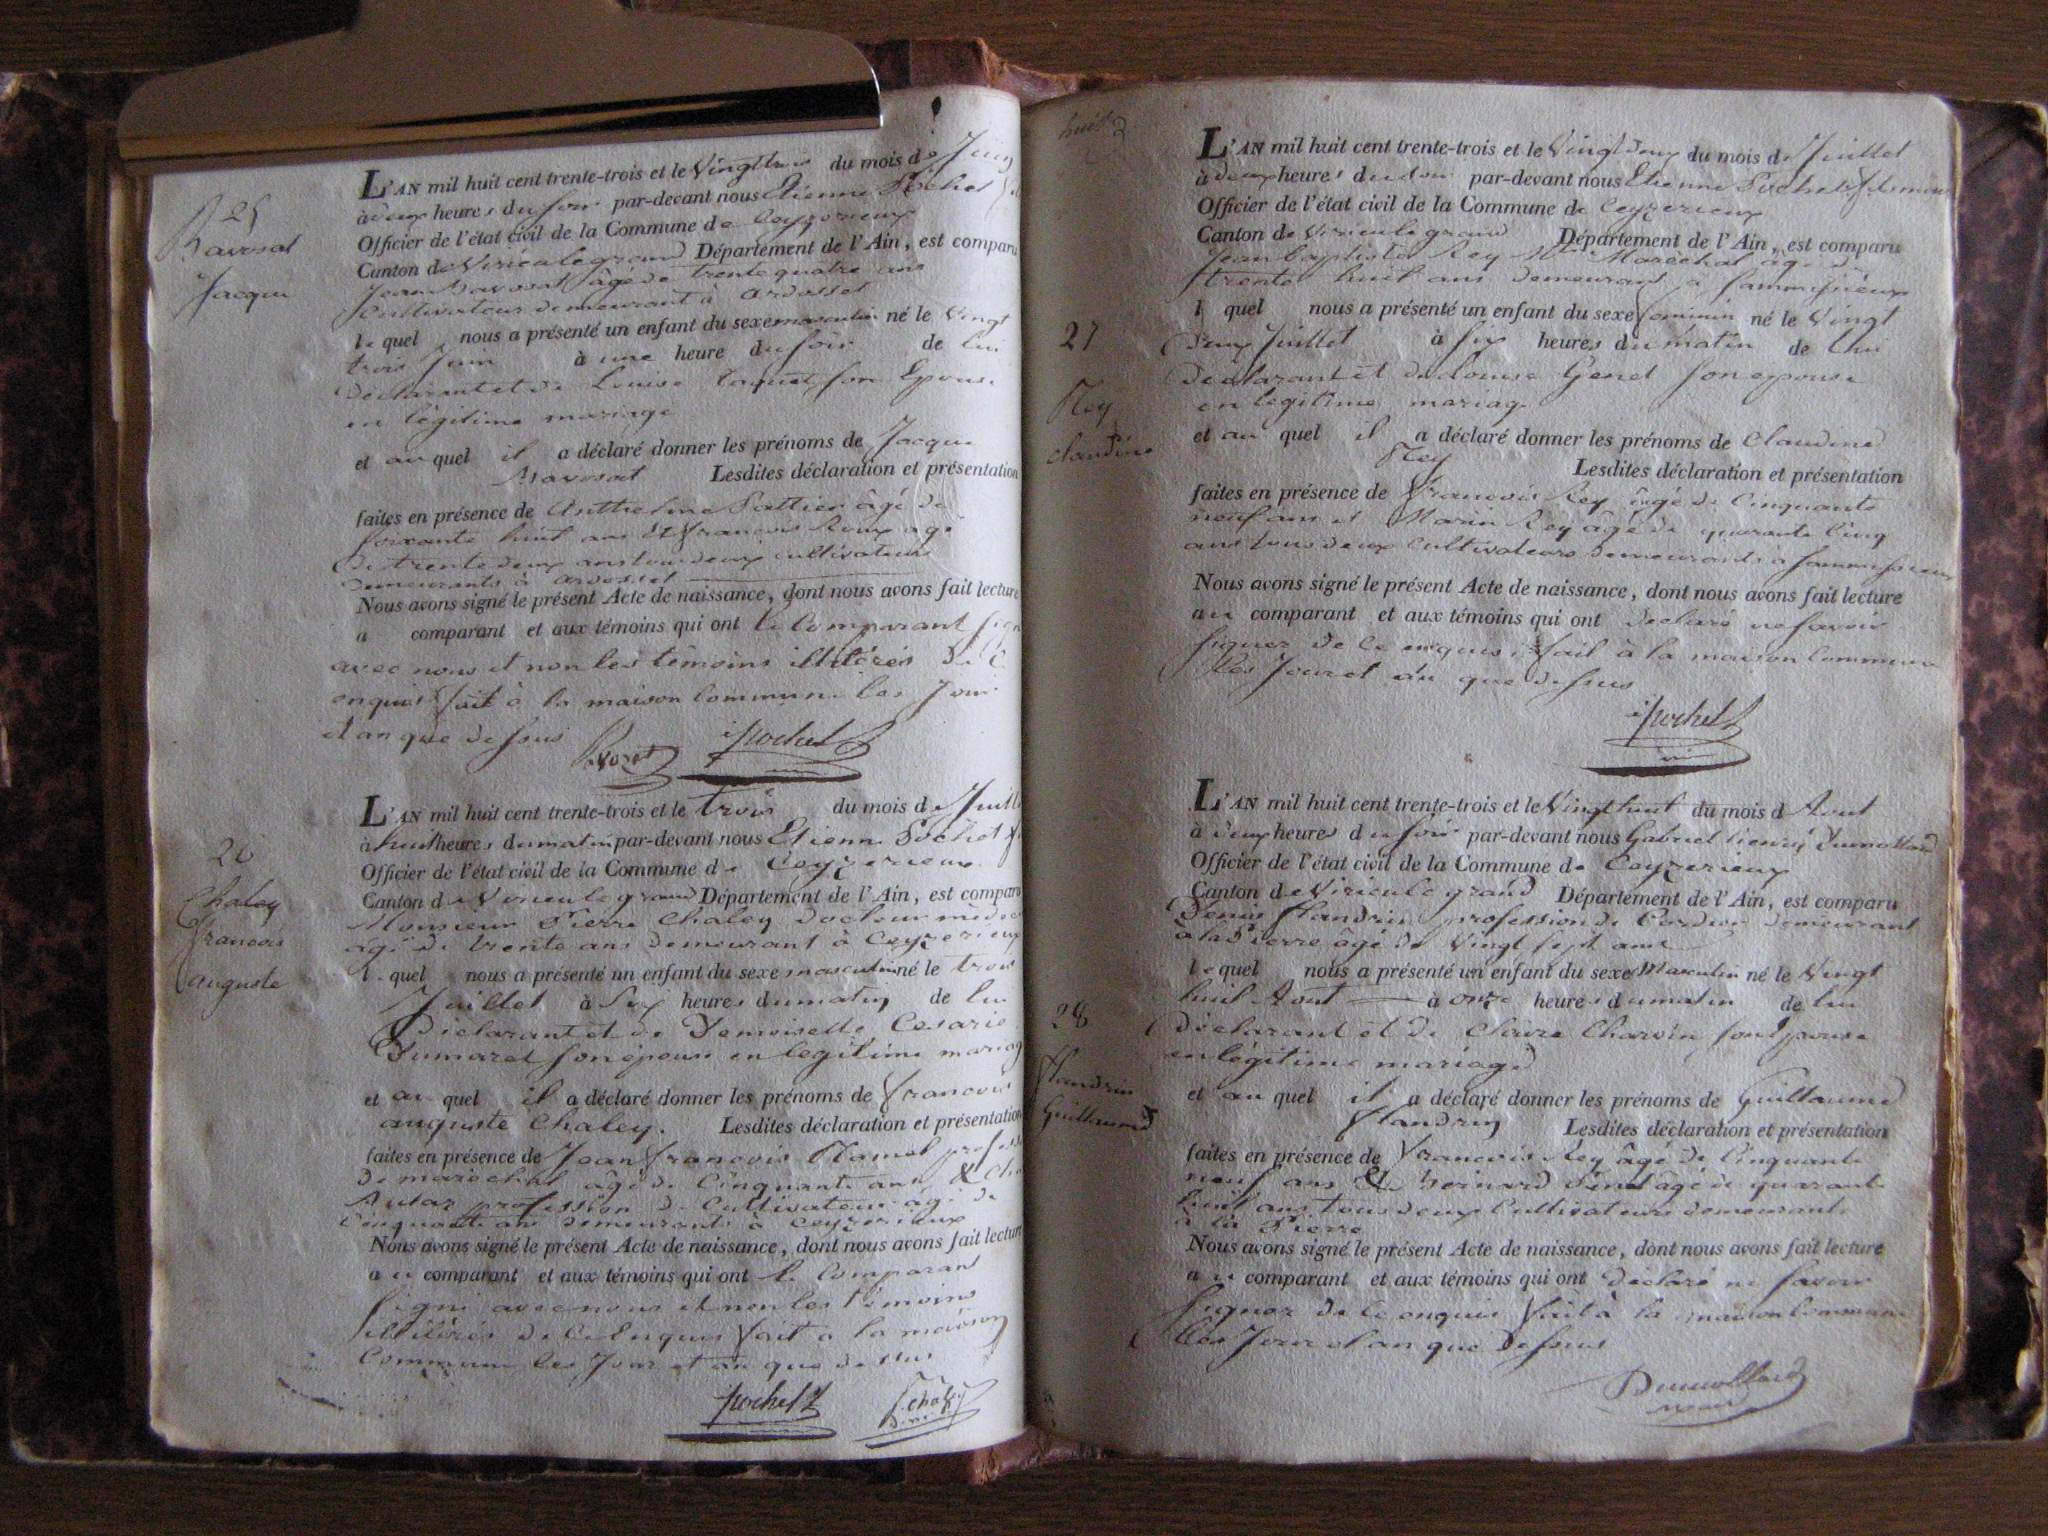 25
Ravosat
Jacque
L'AN mil huit cent trente-trois et le Vingt trois du mois de Juin
à deux heures du soir par-devant nous Etienne Pochet
Officier de l'état civil de la Commune de Ceyzerieux
Canton de Virieu le grand Département de l'Ain, est comparu
Jean Ravosat âgé de trente quatre ans
cultivateur demeurant à Ardosset
lequel nous a présenté un enfant du sexe masculin né le Vingt
trois Juin à une heure du soir de lui
déclarant et de Louise son Epouse
en légitime mariage
et au quel il a déclaré donner les prénoms de Jacque
Ravosat Lesdites déclaration et présentation
faites en présence de Anthelme Pattier âgé de
soixante huit ans Et francois Roux agé
de trente deux ans tou deux cultivateurs
demeurants à ardosset
Nous avons signé le présent Acte de naissance, dont nous avons fait lecture
a comparant et aux témoins qui ont le Comparant
avec nous et non les témoins illitérés De C
enquis fait à la maison Commune les Jour
et an que dessus
Pochet
26
Chaley
francois
auguste
L'AN mil huit cent trente-trois et le trois du mois de Juill
à huit heures du matin par-devant nous Etienne Pochet
Officier de l'état civil de la Commune de Ceyzerieux
Canton de Virieu le grand Département de l'Ain, est comparu
Monsieur Pierre Chaley docteur médec
âgé de trente ans demeurant à Ceyzerieux
lequel nous a présenté un enfant du sexe masculin né le trois
Juillet à Six heures du matin de lui
Déclarant et de Demoiselle Cesarie
Dumarest son épouse en legitime mariag
et au quel il a déclaré donner les prénoms de francois
auguste Chaley. Lesdites déclaration et présentation
faites en présence de Jean francois Ramel profess
de maréchal âgé de Cinquante ans & Cha
profession de Cultivateur âgé de
Cinquante ans demeurants à Ceyzerieux
Nous avons signé le présent Acte de naissance, dont nous avons fait lecture
au comparant et aux témoins qui ont le Comparant
signé avec nous et non les témoins
illitérés de Ce Enquis fait a la maison
Commune les Jour et an que dessus
Pochet
27
Rey
claudine
L'AN mil huit cent trente-trois et le Vingt deux du mois de Juillet
à deux heures du soir par-devant nous Etienne Pochet
Officier de l'état civil de la Commune de Ceyzerieux
Canton de Virieu le grand Département de l'Ain, est comparu
Jean baptiste Rey Maréchal âgé de
trente huit ans demeurant à
lequel nous a présenté un enfant du sexe féminin né le Vingt
deux Juillet à six heures du matin de lui
déclarant et de Louise Genet son épouse
en legitime mariag
et au quel il a déclaré donner les prénoms de Claudine
Rey Lesdites déclaration et présentation
faites en présence de francois Rey âgé de Cinquante
neuf ans et Marin Rey âgé de quarante Cinq
ans tous deux Cultivateurs demeurants à
Nous avons signé le présent Acte de naissance, dont nous avons fait lecture
au comparant et aux témoins qui ont déclaré ne savoir
signer de Ce enquis fait à la maison Commune
les Jour et an que dessus
Pochet
28
flandrin
Guillaume
L'AN mil huit cent trente-trois et le Vingt huit du mois d Aout
à deux heures du soir par-devant nous Gabriel Dumollard
Officier de l'état civil de la Commune de Ceyzerieux
Canton de Virieu le grand Département de l'Ain, est comparu
Denis flandrin profession de Cordier demeurant
à la Pierre âgé de Vingt sept ans
lequel nous a présenté un enfant du sexe Masculin né le Vingt
huit Aout à onze heures du matin de lui
Déclarant et de Claire Charvin son Epouse
en légitime mariage
et au quel il a déclaré donner les prénoms de Guillaume
flandrin Lesdites déclaration et présentation
faites en présence de francois Rey âgé de Cinquante
neuf ans & bernard âgé de quarante
huit ans tous deux Cultivateurs demeurants
à la Pierre
Nous avons signé le présent Acte de naissance, dont nous avons fait lecture
au comparant et aux témoins qui ont déclaré ne savoir
signer de Ce enquis fait à la maison Commune
les Jour et an que Dessus
Dumollard